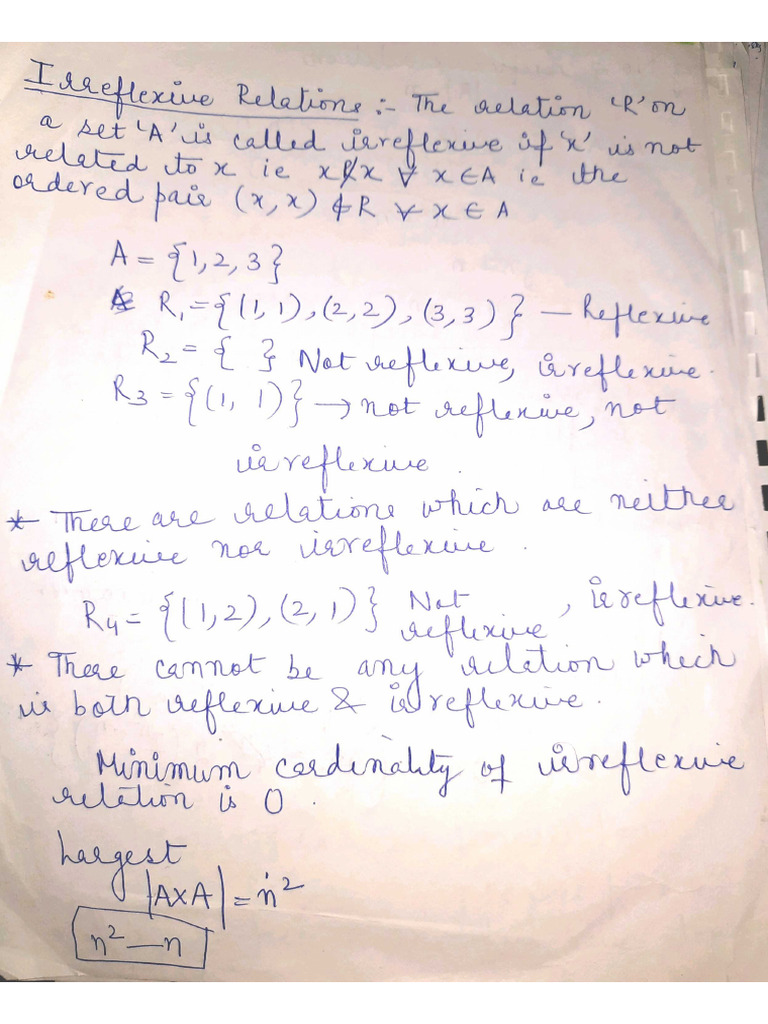 Irreflexive Relations :- The relation 'R' on
a set 'A' is called irreflexive if 'x' is not
related to x ie x R̸ x ∀ x ∈ A ie the
ordered pair (x, x) ∉ R ∀ x ∈ A
A = {1, 2, 3}
R₁ = {(1, 1), (2, 2), (3, 3)} — Reflexive
R₂ = { } Not reflexive, irreflexive.
R₃ = {(1, 1)} → not reflexive, not
irreflexive.
* There are relations which are neither
reflexive nor irreflexive.
R₄ = {(1, 2), (2, 1)} Not reflexive, irreflexive.
* There cannot be any relation which
is both reflexive & irreflexive.
Minimum cardinality of irreflexive
relation is 0.
Largest
|A×A| = n²
n² — n